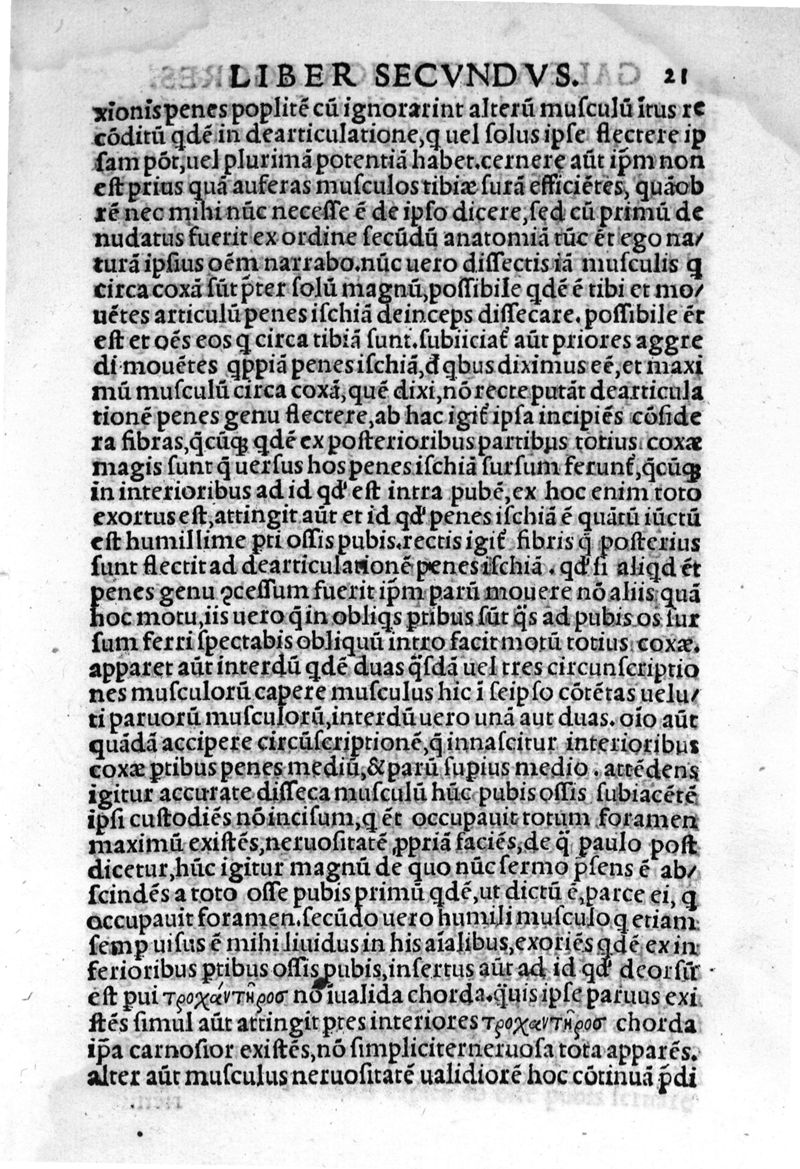 LIBER SECVNDVS. 21
xionis penes poplitē cū ignorarint alterū musculū ītus re
cōditū qdē in dearticulatione, q uel solus ipse flectere ip
sam pōt, uel plurimā potentiā habet. cernere aūt ip̄m non
est prius quā auferas musculos tibiæ surā efficiētes, quāob
rē nec mihi nūc necesse ē de ipso dicere, sed cū primū de
nudatus fuerit ex ordine secūdū anatomiā tūc ēt ego na/
turā ipsius oēm narrabo. nūc uero dissectis iā musculis q
circa coxā sūt p̄ter solū magnū, possibile qdē ē tibi et mo/
uētes articulū penes ischiā deinceps dissecare. possibile ēt
est et oēs eos q circa tibiā sunt. subiiciat᷒ aūt priores aggre
di mouētes qppiā penes ischiā, đ qbus diximus eē, et maxi
mū musculū circa coxā, quē dixi, nō recte putāt dearticula
tionē penes genu flectere, ab hac igit᷒ ipsa incipiēs cōside
ra fibras, q̄cūqꝫ qdē ex posterioribus partibus totius coxæ
magis sunt q̄ uersus hos penes ischiā sursum ferunt᷒, q̄cūqꝫ
in interioribus ad id qđ est intra pubē, ex hoc enim toto
exortus est, attingit aūt et id qđ penes ischiā ē quātū iūctū
est humillime pti ossis pubis. rectis igit᷒ fibris q̄ posterius
sunt flectit ad dearticulationē penes ischiā. qđ si aliqd ēt
penes genu ꝯcessum fuerit ip̄m parū mouere nō aliis quā
hoc motu, iis uero q̄ in obliqs ptibus sūt q̄s ad pubis os sur
sum ferri spectabis obliquū intro facit motū totius coxæ.
apparet aūt interdū qdē duas q̄sdā uel tres circunscriptio
nes musculorū capere musculus hic i seipso cōtētas uelu/
ti paruorū musculorū, interdū uero unā aut duas. oīo aūt
quādā accipere circūscriptionē, q̄ innascitur interioribus
coxæ ptibus penes mediū, & parū supius medio. attēdens
igitur accurate disseca musculū hūc pubis ossis subiacētē
ipsi custodiēs nō incisum, q ēt occupauit totum foramen
maximū existēs, neruositatē ꝓpriā faciēs, de q̄ paulo post
dicetur, hūc igitur magnū de quo nūc sermo p̄sens ē ab/
scindēs a toto osse pubis primū qdē, ut dictū ē, parce ei, q
occupauit foramen. secūdo uero humili musculo q etiam
semp uisus ē mihi liuidus in his aīalibus, exoriēs qdē ex in
ferioribus ptibus ossis pubis, insertus aūt ad id qđ deorsū
est pui τροχάντῆροσ nō iualida chorda. q̄uis ipse paruus exi
stēs simul aūt attingit ptes interiores τροχαντῆροσ chorda
ip̄a carnosior existēs, nō simpliciter neruosa tota apparēs.
alter aūt musculus neruositatē ualidiorē hoc cōtinuā p̄di